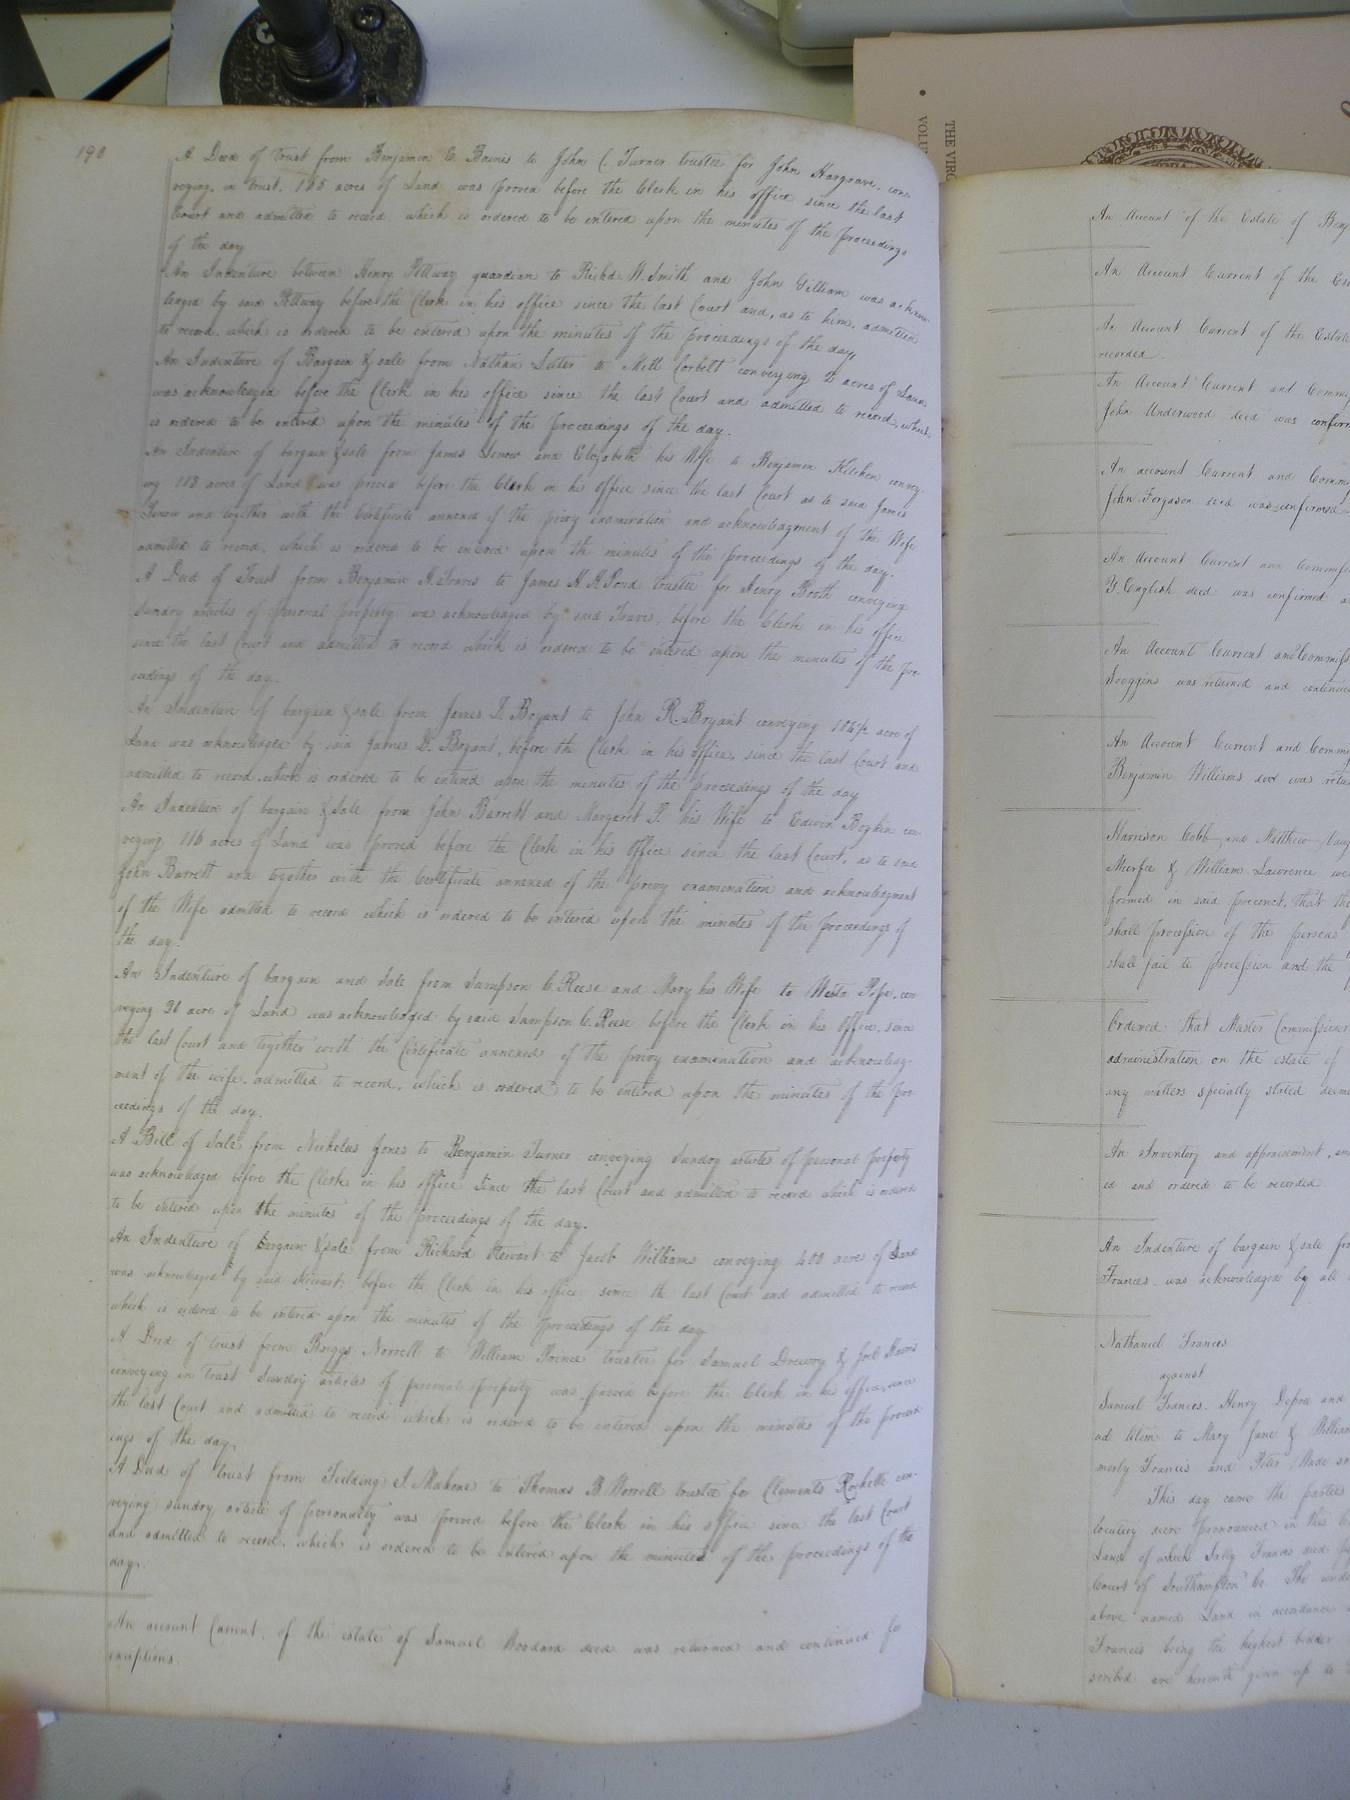 190
A Deed of trust from Benjamin E. Barnes to John C. Turner trustee for John Hargrave, con-
veying, in trust, 165 acres of Land was proven before the Clerk in his office since the last
Court and admitted to record which is ordered to be entered upon the minutes of the proceedings
of the day
An Indenture between Henry Pettway guardian to Richd. W. Smith and John Gilliam was acknow-
ledged by said Pettway before the Clerk in his office since the last Court and, as to him, admitted
to record, which is ordered to be entered upon the minutes of the proceedings of the day,
An Indenture of Bargain & sale from Nathan to Mill Corbett conveying acres of Land
was acknowledged before the Clerk in his office since the last Court and admitted to record, which
is ordered to be entered upon the minutes of the proceedings of the day.
An Indenture of bargain & sale from James and Elizabeth his Wife to Benjamin Kitchen convey-
ing 113 acres of Land was proven before the Clerk in his office since the last Court as to said James
and together with the Certificate annexed of the privy examination and acknowledgment of the Wife
admitted to record, which is ordered to be entered upon the minutes of the proceedings of the day.
A Deed of Trust from Benjamin to James trustee for Henry Booth conveying
sundry articles of personal property was acknowledged by said before the Clerk in his office
since the last Court and admitted to record which is ordered to be entered upon the minutes of the pro-
ceedings of the day.
An Indenture of bargain & sale from James D. Bryant to John R. Bryant conveying acre of
Land was acknowledged by said James D. Bryant, before the Clerk in his office, since the last Court and
admitted to record which is ordered to be entered upon the minutes of the proceedings of the day
An Indenture of bargain & sale from John Barrett and Margaret his Wife to Edwin Boykin con-
veying 116 acres of Land was proved before the Clerk in his Office since the last Court, as to said
John Barrett and together with the Certificate annexed of the privy examination and acknowledgment
of the Wife admitted to record which is ordered to be entered upon the minutes of the proceedings of
the day.
An Indenture of bargain and sale from Sampson C. Reese and Mary his Wife to Pope, con-
veying 26 acre of Land was acknowledged by said Sampson C. Reese before the Clerk in his Office, since
the last Court and together with the Certificate annexed of the privy examination and acknowledg-
ment of the wife, admitted to record, which is ordered to be entered upon the minutes of the pro-
ceedings of the day.
A Bill of Sale from Nicholas Jones to Benjamin Turner conveying Sundry articles of personal property
was acknowledged before the Clerk in his office since the last Court and admitted to record which is ordered
to be entered upon the minutes of the proceedings of the day.
An Indenture of bargain & sale from Richard Stewart to Jacob Williams conveying 400 acres of Land
was acknowledged by said Stewart, before the Clerk in his office since the last Court and admitted to record
which is ordered to be entered upon the minutes of the proceedings of the day
A Deed of trust from Briggs Norvell to William Prince trustee for Samuel Drewry & Joel Harris
conveying in trust sundry articles of personal property was proved before the Clerk in his office, since
the last Court and admitted to record which is ordered to be entered upon the minutes of the proceed-
ings of the day,
A Deed of trust from Fielding J. Mahone to Thomas B. Worrell trustee for Clements Rochelle con-
veying sundry article of personalty was proved before the Clerk in his office since the last Court
and admitted to record, which is ordered to be entered upon the minutes of the proceedings of the
day.
An account Current of the estate of Samuel Woodard decd was returned and continued for
exceptions.
THE VIRG
VOLU
An Account of the Estate of Benj
An Account Current of the Est
An Account Current of the Estate
recorded.
An Account Current and Commis
John Underwood decd was confirm
An account Current and Commis
John Ferguson decd was confirmed
An Account Current and Commis
Y. English decd was confirmed a
An Account Current and Commis
Scoggins was returned and continued
An Account Current and Commis
Benjamin Williams decd was retu
Harrison Cobb and Matthew Vaug
Murfee & William Lawrence we
formed in said precinct, that the
shall procession of the persons
shall fail to procession and the
Ordered that Master Commissioner
administration on the estate of
any matters specially stated deem
An Inventory and appraisement, an
ed and ordered to be recorded.
An Indenture of bargain & sale fro
Frances was acknowledged by all
Nathaniel Frances
against
Samuel Frances, Henry Depree and
ad litem to Mary Jane & William
merly Francis and Peter Wade
This day came the parties
locutory decree pronounced in this C
Land of which Sally Frances died
Court of Southampton Co. The
above named Land in accordance
Frances being the highest bidder
scribed are herewith given up to